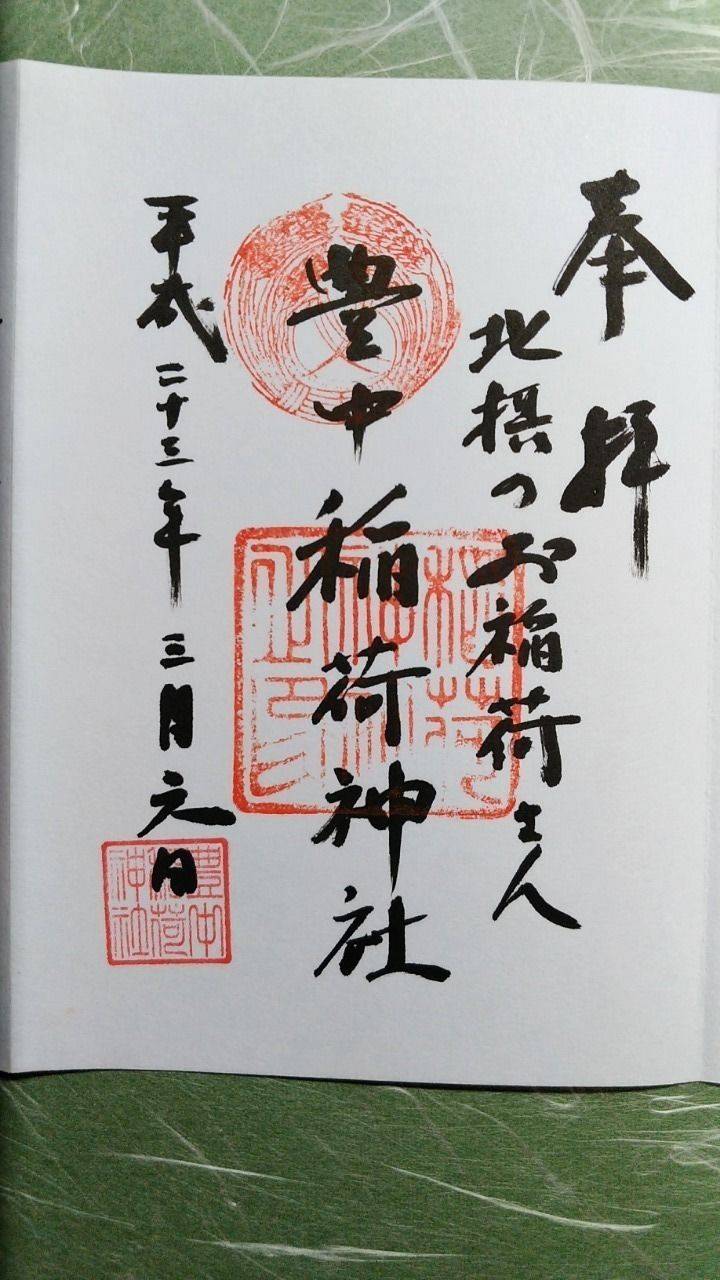 奉拝
北摂のお稲荷さん
豊中稲荷神社
平成二十三年三月元日
豊中稲荷神社